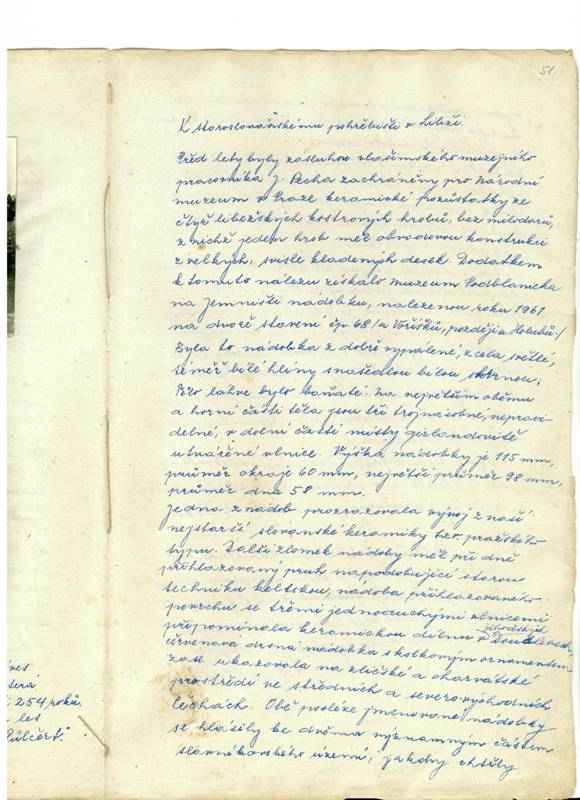 51.
K staroslovanskému pohřebišti v Libži.
Před lety byly zásluhou vlašimského muzejního
pracovníka J. Pecha zachráněny pro Národní
muzeum v Praze keramické pozůstatky ze
čtyř libežských kostrových hrobů, bez milodarů,
z nichž jeden hrob měl obvodovou konstrukci
z velkých, svisle kladených desek. Dodatkem
k tomuto nálezu získalo muzeum Podblanicka
na Jemništi nádobku, nalezenou roku 1961
na dvoře stavení čp. 68 /u Vořišků, později u Holubů./
Byla to nádobka z dobře vypálené, zcela světlé,
téměř bílé hlíny s našedlou bílou skvrnou;
tělo lahve bylo baňaté. Na největším objemu
a horní části těla jsou tři trojnásobné, nepravi-
delné, v dolní části místy girlandovitě
utvářené vlnice. Výška nádobky je 115 mm,
průměr okraje 60 mm, největší průměr 98 mm,
průměr dna 58 mm.
Jedna z nádob prozrazovala vývoj z naší
nejstarší slovanské keramiky tzv. pražského
typu. Další zlomek nádoby měl při dně
přihlazovaný pruh napodobující starou
techniku keltskou, nádoba přihlazovaného
povrchu se třemi jednoduchými vlnicemi
připomínala keramickou dílnu v jihočeských Doudlebech,
červenavá drsná nádobka s kolkovým ornamentem
zase ukazovala na zličské a charvátské
prostředí ve středních a severovýchodních
Čechách. Obě posléze jmenované nádobky
se hlásily ke dvěma významným částem
slavníkovského území; jakoby chtěly
ves
terá
i 254 roků.
les
Půlčért".